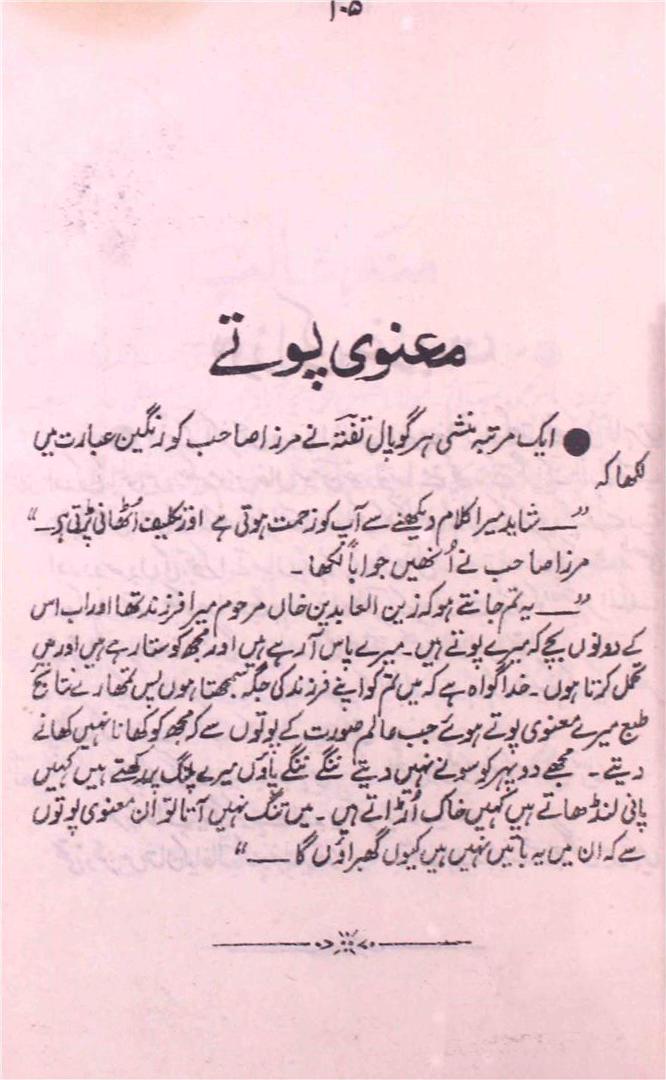 ۱۰۵
معنوی پوتے
● ایک مرتبہ منشی ہرگوپال تفتہؔ نے مرزا صاحب کو رنگین عبارت میں
لکھا کہ
”ــــ شاید میرا کلام دیکھنے سے آپ کو زحمت ہوتی ہے اور تکلیف اُٹھانی پڑتی ہے۔“
مرزا صاحب نے اُنھیں جواباً لکھا۔
”ــــ یہ تم جانتے ہو کہ زین العابدین خاں مرحوم میرا فرزند تھا اور اب اس
کے دونوں بچے کہ میرے پوتے ہیں۔ میرے پاس آ رہے ہیں اور مجھ کو ستا رہے ہیں اور میں
تحمل کرتا ہوں۔ خدا گواہ ہے کہ میں تم کو اپنے فرزند کی جگہ سمجھتا ہوں پس تمھارے نتائج
طبع میرے معنوی پوتے ہوئے جب عالم صورت کے پوتوں سے کہ مجھ کو کھانا نہیں کھانے
دیتے۔ مجھے دوپہر کو سونے نہیں دیتے ننگے ننگے پاؤں میرے پلنگ پر رکھتے ہیں کہیں
پانی لنڈھاتے ہیں کہیں خاک اُڑاتے ہیں۔ میں تنگ نہیں آتا تو ان معنوی پوتوں
سے کہ ان میں یہ باتیں نہیں ہیں کیوں گھبراؤں گا ــــ“